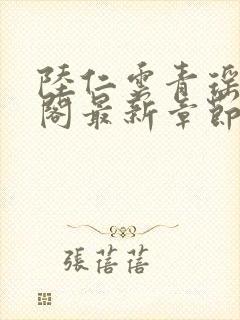 陸仁雲青瑶
閣最新章節
張蓓蓓